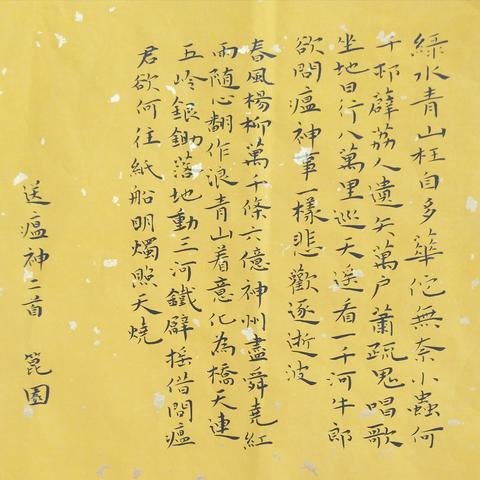 綠水青山枉自多華佗無奈小蟲何
千邨薜荔人遺矢萬户蕭疏鬼唱歌
坐地日行八萬里巡天遥看一千河牛郎
欲問瘟神事一樣悲歡逐逝波
春風楊柳萬千條六億神州盡舜堯紅
雨随心翻作浪青山着意化為橋天連
五岭銀鋤落地動三河鐵臂摇借問瘟
君欲何往紙船明燭照天燒
送瘟神二首 園